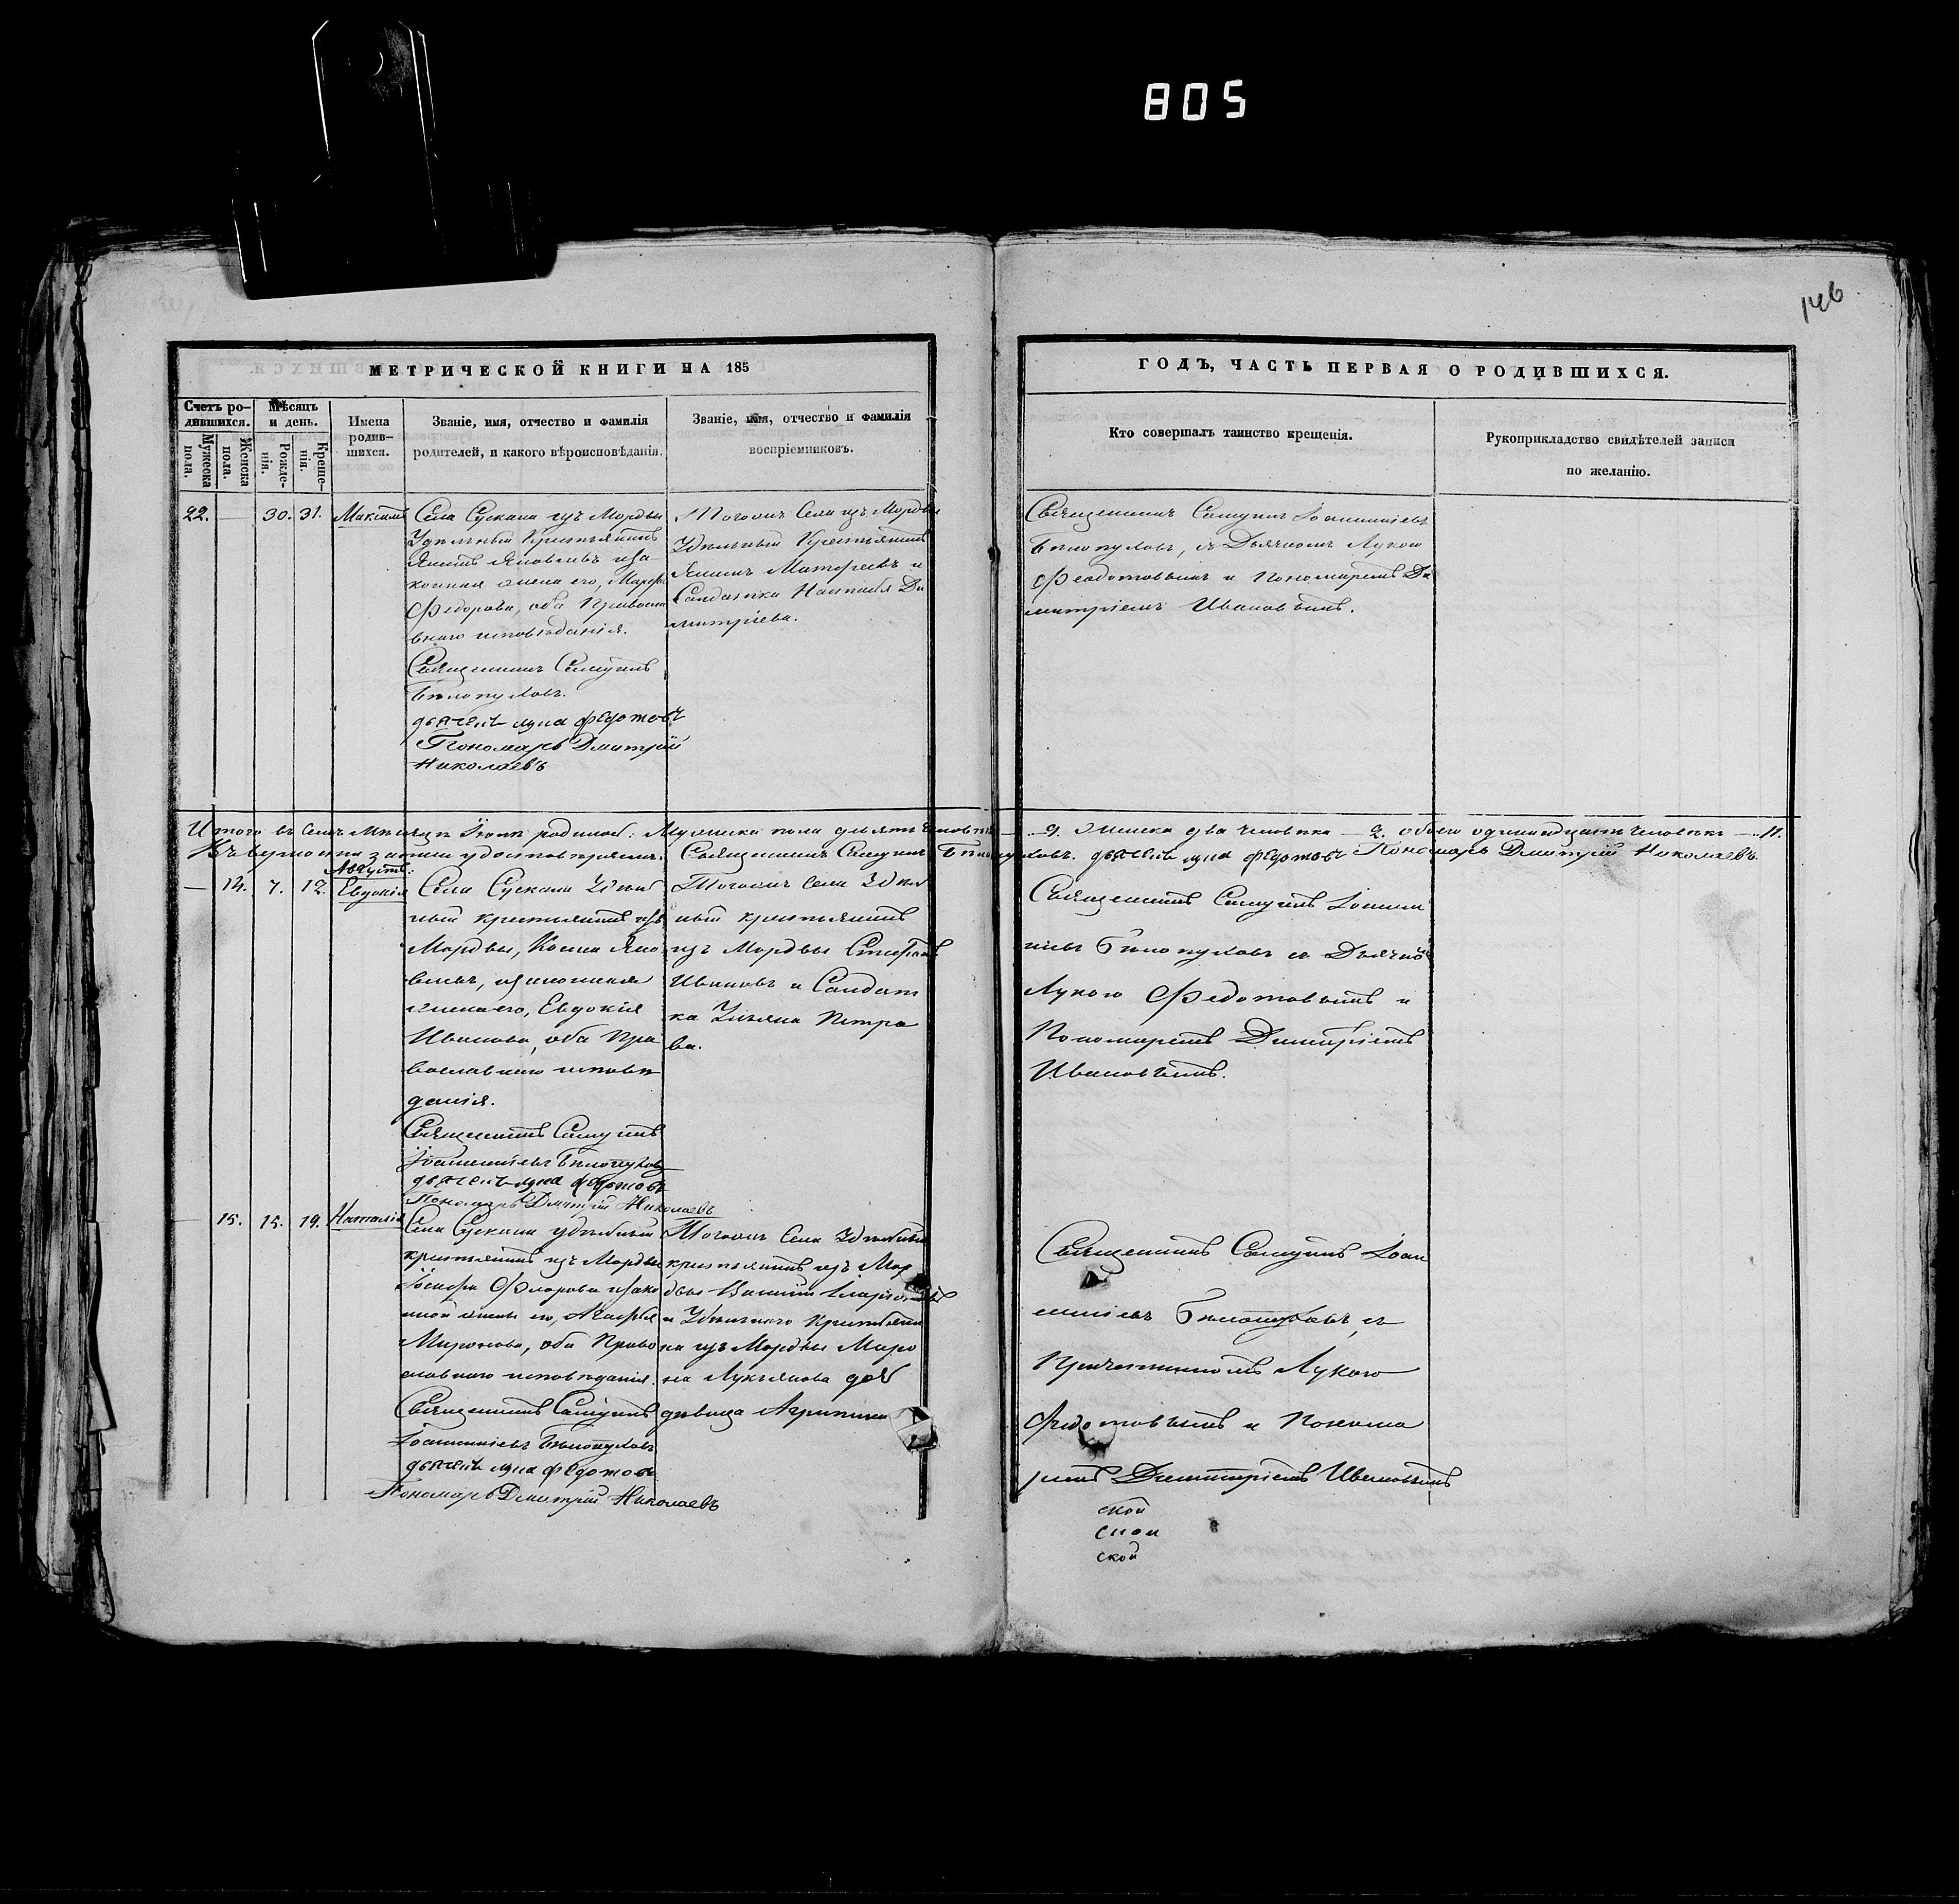 805
146
МЕТРИЧЕСКОЙ КНИГИ НА 185
ГОДЪ, ЧАСТЬ ПЕРВАЯ О РОДИВШИХСЯ.
Счетъ родившихся.
Мужеска пола.
Женска пола.
Мѣсяцъ и день.
Рожденія.
Крещенія.
Имена родившихся.
Званіе, имя, отчество и фамилія
родителей, и какого вѣроисповѣданія.
Званіе, имя, отчество и фамилія
воспріемниковъ.
Кто совершалъ таинство крещенія.
Рукоприкладство свидѣтелей записи
по желанію.
22. — 30. 31. Максимъ
Села Сускана изъ Мордвы
Удѣльный Крестьянинъ
Яковлевъ и за
конная жена его,
Федорова, оба Православ
наго исповѣданія.
Священникъ Самуилъ
Бѣлопуховъ.
дьячекъ лука федотовъ
Пономарь Дмитрій
Николаевъ
Тогожъ Села изъ Мордвы
Удѣльный Крестьянинъ
Матфеевъ и
Солдатка Наталія Ди
митріева.
Священникъ Самуилъ Іоанникіевъ
Бѣлопуховъ, съ Дьячкомъ Лукою
Феодотовымъ и Пономаремъ Ди
митріемъ Ивановымъ.
Итого въ семъ мѣсяцѣ родилось: Мужеска пола девять человѣкъ — 9. Женска два человѣка — 2. обоего одиннадцать человѣкъ — 11.
Священникъ Самуилъ Бѣлопуховъ. дьячекъ лука федотовъ Пономарь Дмитрій Николаевъ.
Августъ:
— 14. 7. 12. Евдокія
Села Сускана Удѣль
ный крестьянинъ изъ
Мордвы, Козма Яко
влевъ, и законная
жена его, Евдокія
Иванова, оба Пра
вославнаго исповѣ
данія.
Священникъ Самуилъ
Іоанникіевъ Бѣлопуховъ
дьячекъ лука федотовъ
Пономарь Дмитрій Николаевъ
Тогожъ Села Удѣль
ный крестьянинъ
изъ Мордвы Стефанъ
Ивановъ и Солдат
ка Ульяна Петро
ва.
Священникъ Самуилъ Іоанни
кіевъ Бѣлопуховъ съ Дьячко
Лукою Федотовымъ и
Пономаремъ Димитріемъ
Ивановымъ.
— 15. 15. 19. Наталія
Села Сускана удѣльный
крестьянинъ изъ Мордвы
Флорова и зако
нной жены его, Агафья
Миронова, оба Право
славнаго исповѣданія.
Священникъ Самуилъ
Іоанникіевъ Бѣлопуховъ
дьячекъ лука федотовъ
Пономарь Дмитрій Николаевъ
Тогожъ Села Удѣльный
крестьянинъ изъ Мор
двы
и Удѣльнаго Крестьяни
на изъ Мордвы Миро
на Лукьянова доч
дѣвица Агрипина
Священникъ Самуилъ Іоан
никіевъ Бѣлопуховъ, съ
Причетникомъ Лукою
Федотовымъ и Понома
ремъ Димитріемъ Ивановымъ
ской
ской
ской